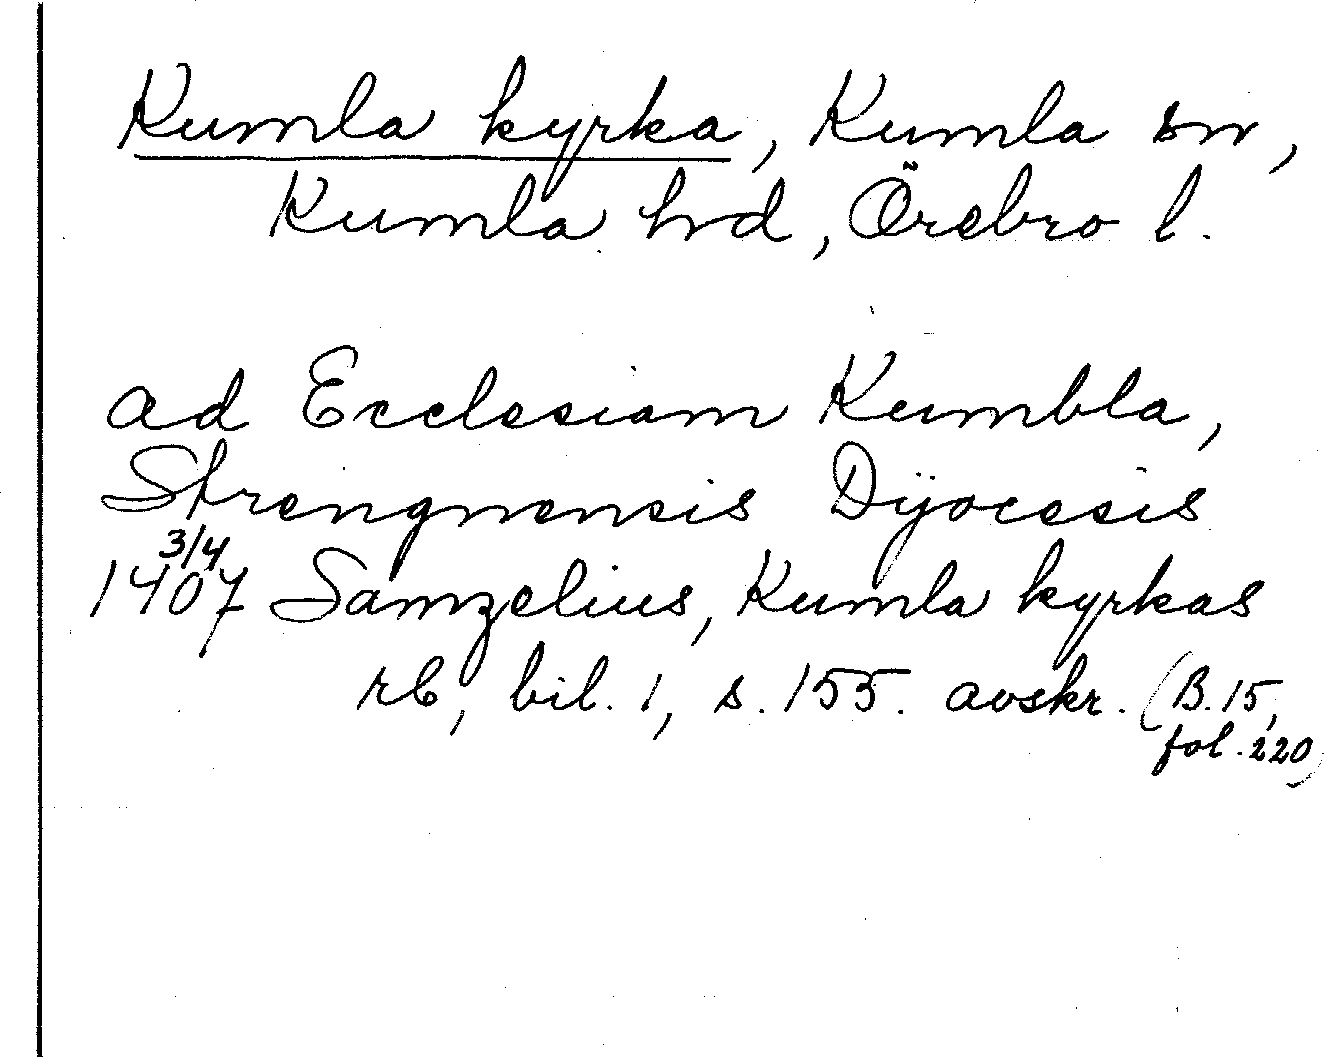 Kumla kyrka, Kumla sn,
Kumla hd, Örebro l.
ad Ecclesiam Kumbla,
Strengnensis Dijocesis
3/4
1407 Samzelius, Kumla kyrkas
rb, bil. 1, s. 155. avskr. (B. 15,
fol. 220)